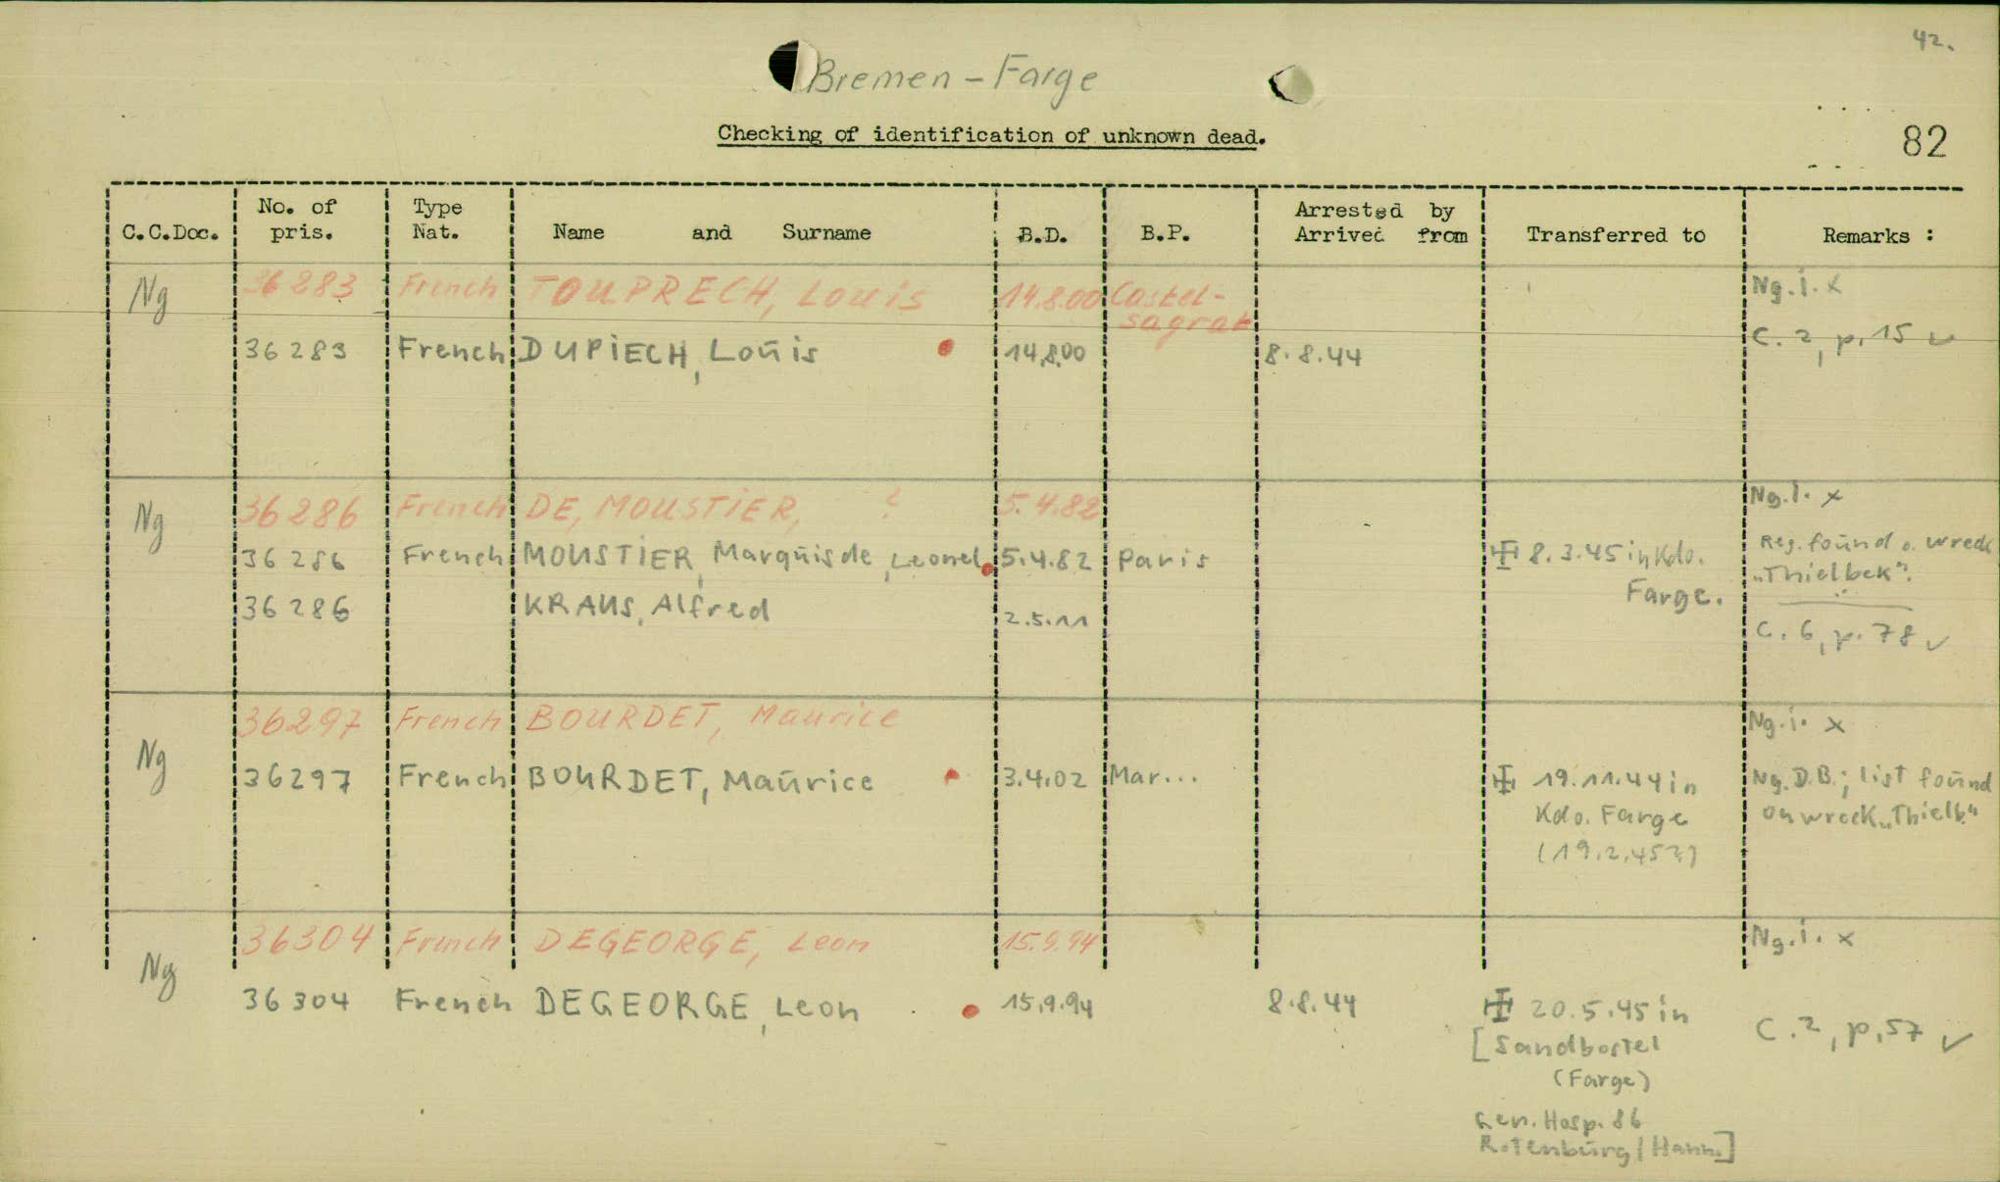 42.
Bremen - Farge
Checking of identification of unknown dead.
82
C.C.Doc. No. of pris. Type Nat. Name and Surname B.D. B.P. Arrested by Arrived from Transferred to Remarks :
Ng 36283 French TOUPRECH, Louis 14.8.00 Castel- Ng. i. x
sagrat
C. 2, p. 15 ✓
36283 French DUPIECH, Louis 14.8.00 8.8.44
Ng 36286 French DE, MOUSTIER, ? 5.4.82 Ng. i. x
36286 French MOUSTIER, Marquis de, Leonel 5.4.82 Paris 8.3.45 in Kdo. Reg. found o. wreck
Farge. "Thielbek".
36286 KRAUS, Alfred 2.5.11
C. 6, p. 78 ✓
Ng 36297 French BOURDET, Maurice Ng. i. x
36297 French BOURDET, Maurice 3.4.02 Mar... 19.11.44 in Ng. D.B.; list found
Kdo. Farge on wreck "Thielb."
(19.2.45?)
Ng 36304 French DEGEORGE, Leon 15.9.94 Ng. i. x
36304 French DEGEORGE, Leon 15.9.94 8.8.44 20.5.45 in
[Sandbostel C. 2, p. 57 ✓
(Farge)
Gen. Hosp. 86
Rotenburg/Hann.]